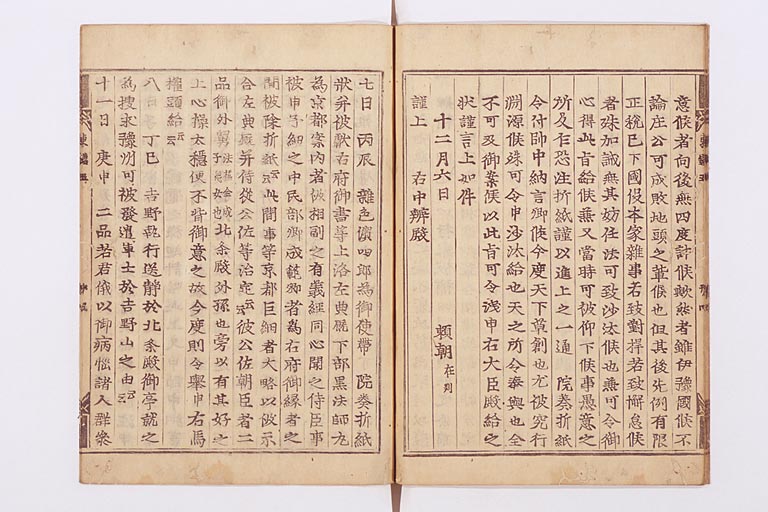 意候者向後無四度計候歟然者雖伊豫國候不
論庄公可成敗地頭之輩候也但其後先例有限
正税已下國役本家雜事若致對捍若致懈怠候
者殊加誡無其妨任法可致沙汰候也可令御
心得此旨給候兼又當時可被仰下候事愚意之
所及乍恐注折紙謹以進上之一通 院奏折紙
令付帥中納言卿候今度天下草創也尤被究行
淵源候殊可令申沙汰給也天之所令奉與也全
不可及御案候以此旨可令洩申右大臣殿給之
狀謹言上如件
十二月六日 頼朝在判
謹上 右中辨殿
七日 丙辰 雜色濱四郎為御使帶 院奏折紙
狀并被獻右府御書等上洛左典厩下部黒法師丸
為京都案内者被相副之有義經同心聞之侍臣事
被申子細之中民部卿成範卿者為右府御縁者之
間被除折紙云云此間事等京都巨細者大略以被示
合左典厩并侍從公佐等治定云云彼公佐朝臣者二
品御外舅 北条殿外孫也旁以有其好之
上心操太穩便不背御意之故今度則令擧申右馬
權頭給云云
八日 丁巳 吉野執行送靜於北条殿御亭就之
為捜求豫州可被發遣軍士於吉野山之由云云
十一日 庚申 二品若君俄以御病惱諸人群參